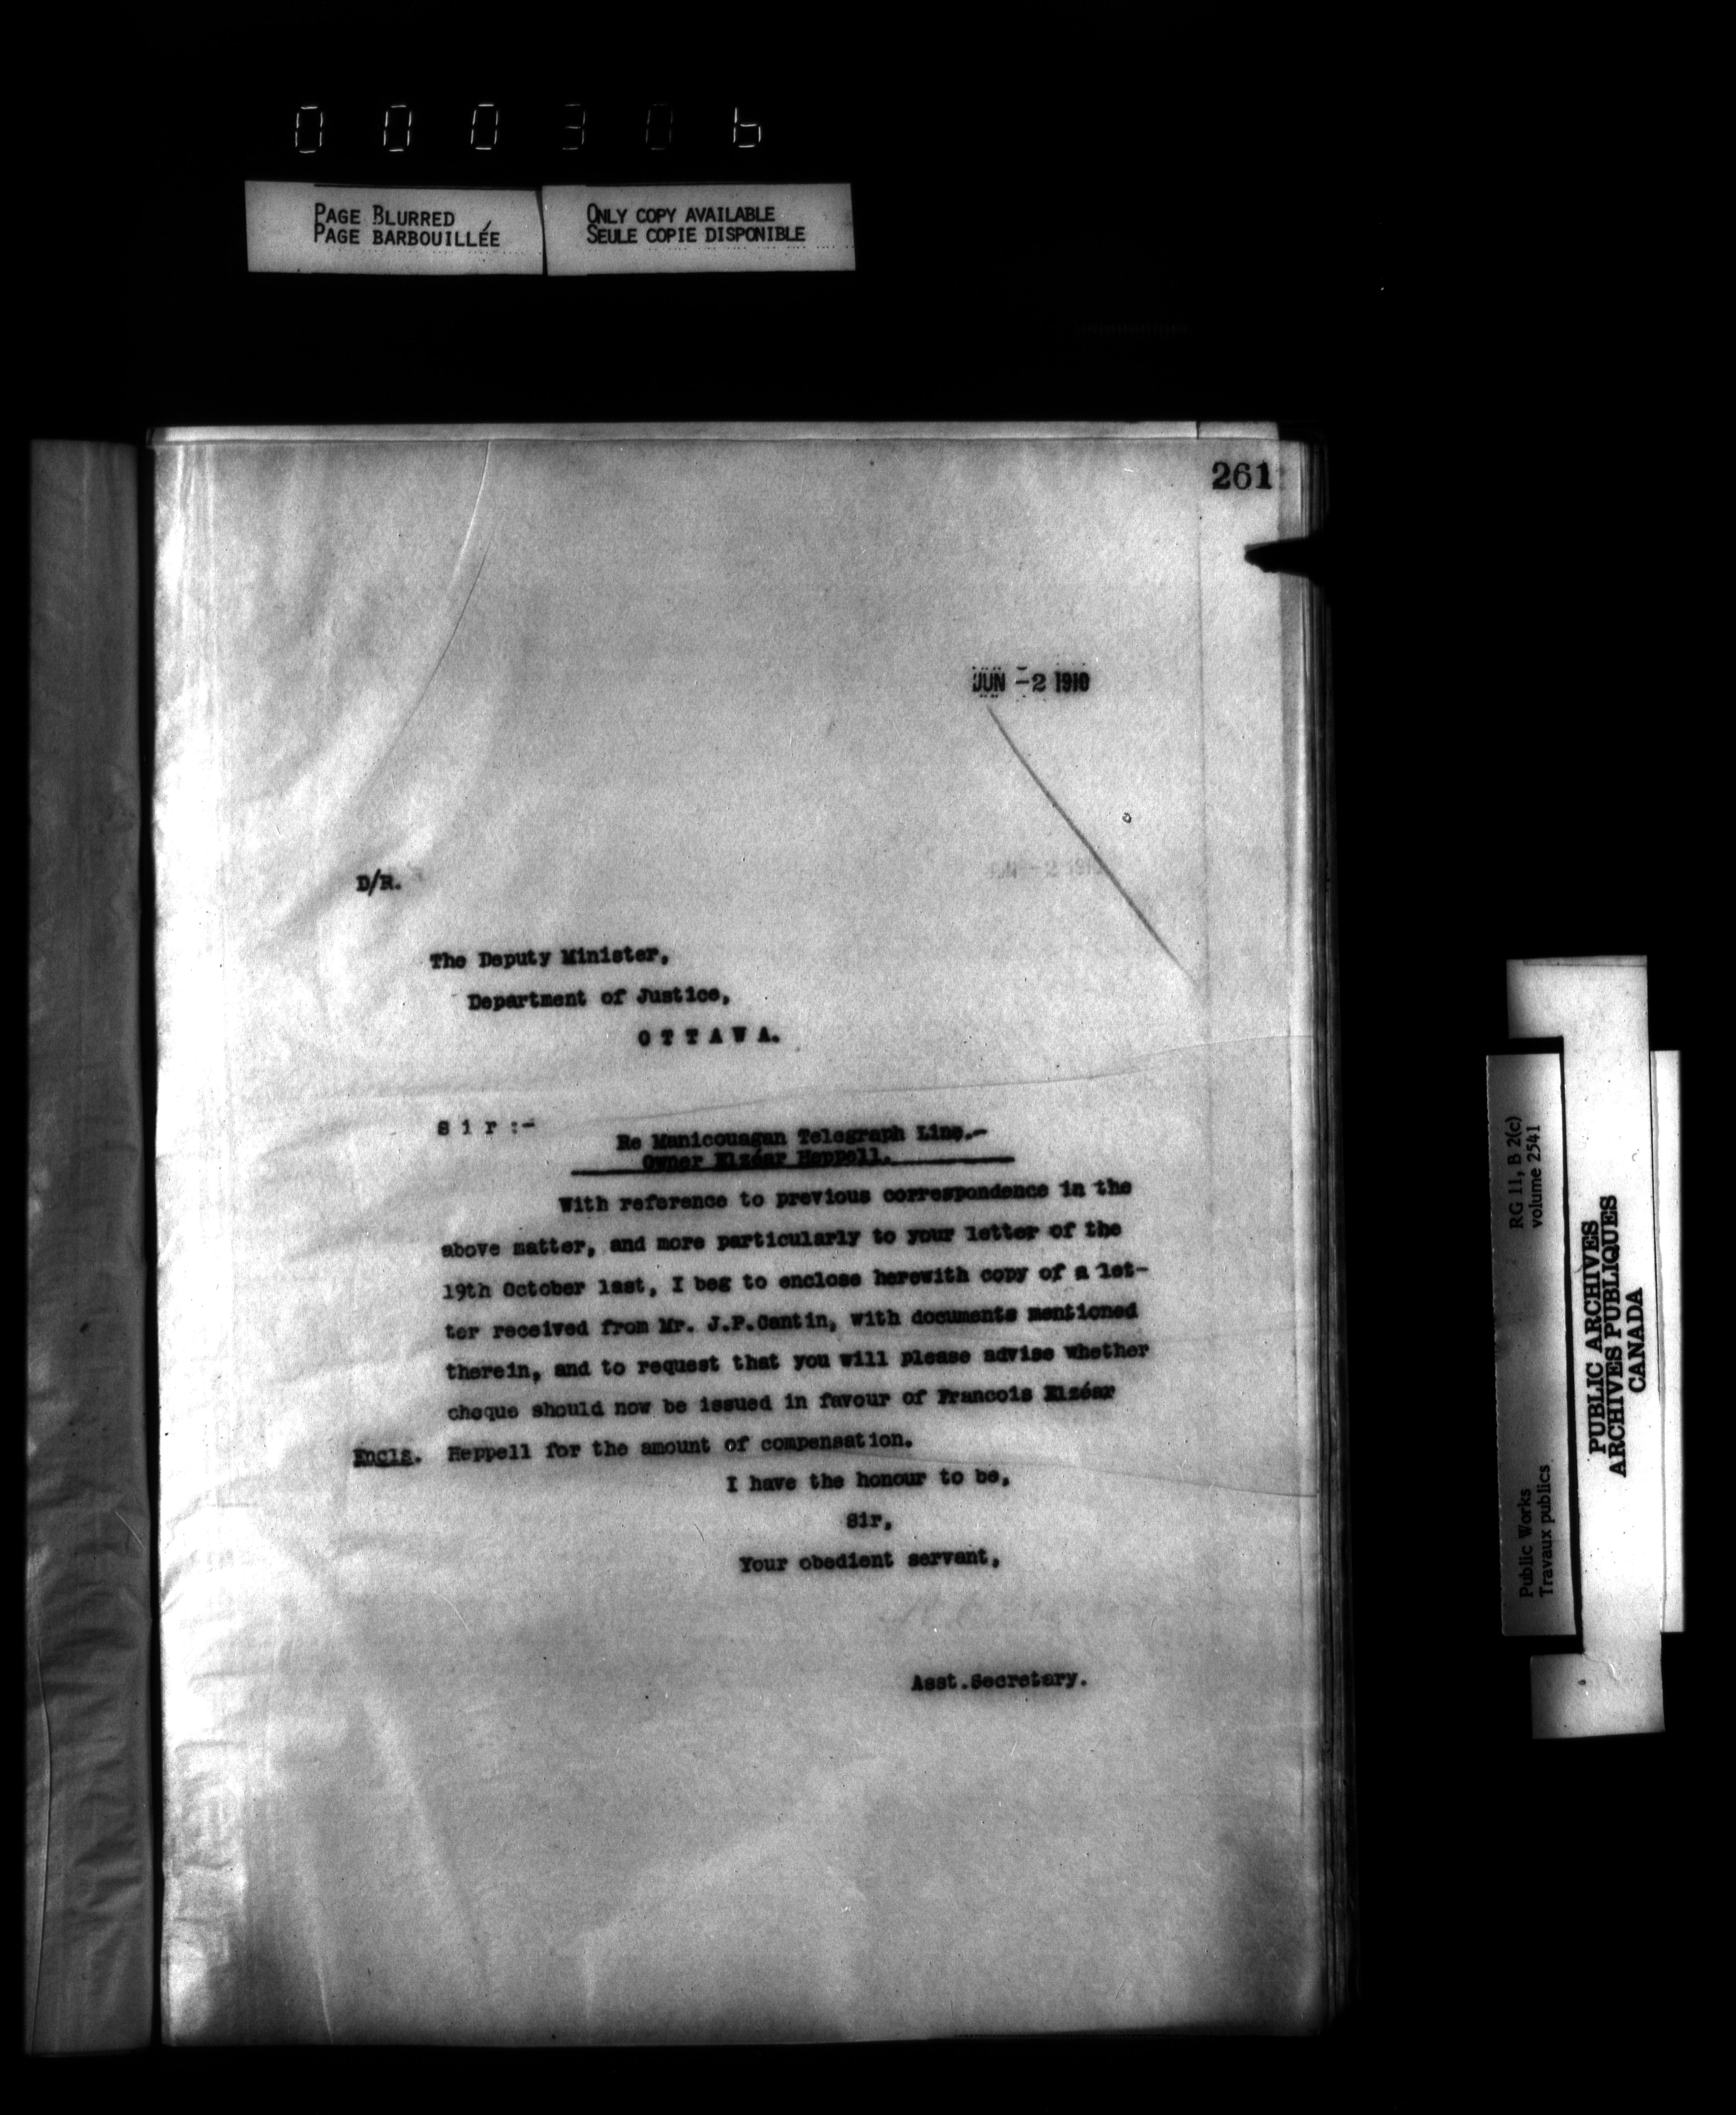 000306
PAGE BLURRED
PAGE BARBOUILLÉE
ONLY COPY AVAILABLE
SEULE COPIE DISPONIBLE
261
JUN -2 1910
D/R.
The Deputy Minister,
Department of Justice,
O T T A W A.
S i r :-
Re Manicouagan Telegraph Line.-
Owner Elzéar Heppell.
With reference to previous correspondence in the
above matter, and more particularly to your letter of the
19th October last, I beg to enclose herewith copy of a let-
ter received from Mr. J.P.Gantin, with documents mentioned
therein, and to request that you will please advise whether
cheque should now be issued in favour of Francois Elzéar
Encls. Heppell for the amount of compensation.
I have the honour to be,
Sir,
Your obedient servant,
Asst.Secretary.
RG 11, B 2(c)
volume 2541
Public Works
Travaux publics
PUBLIC ARCHIVES
ARCHIVES PUBLIQUES
CANADA